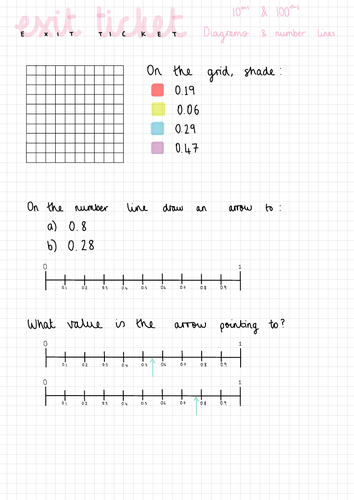 exit ticket
EXIT TICKET
10ths & 100ths
Diagrams & number lines
On the grid, shade:
0.19
0.06
0.29
0.47
On the number line draw an arrow to:
a) 0.8
b) 0.28
0 1
0.1 0.2 0.3 0.4 0.5 0.6 0.7 0.8 0.9
What value is the arrow pointing to?
0 1
0.1 0.2 0.3 0.4 0.5 0.6 0.7 0.8 0.9
0 1
0.1 0.2 0.3 0.4 0.5 0.6 0.7 0.8 0.9